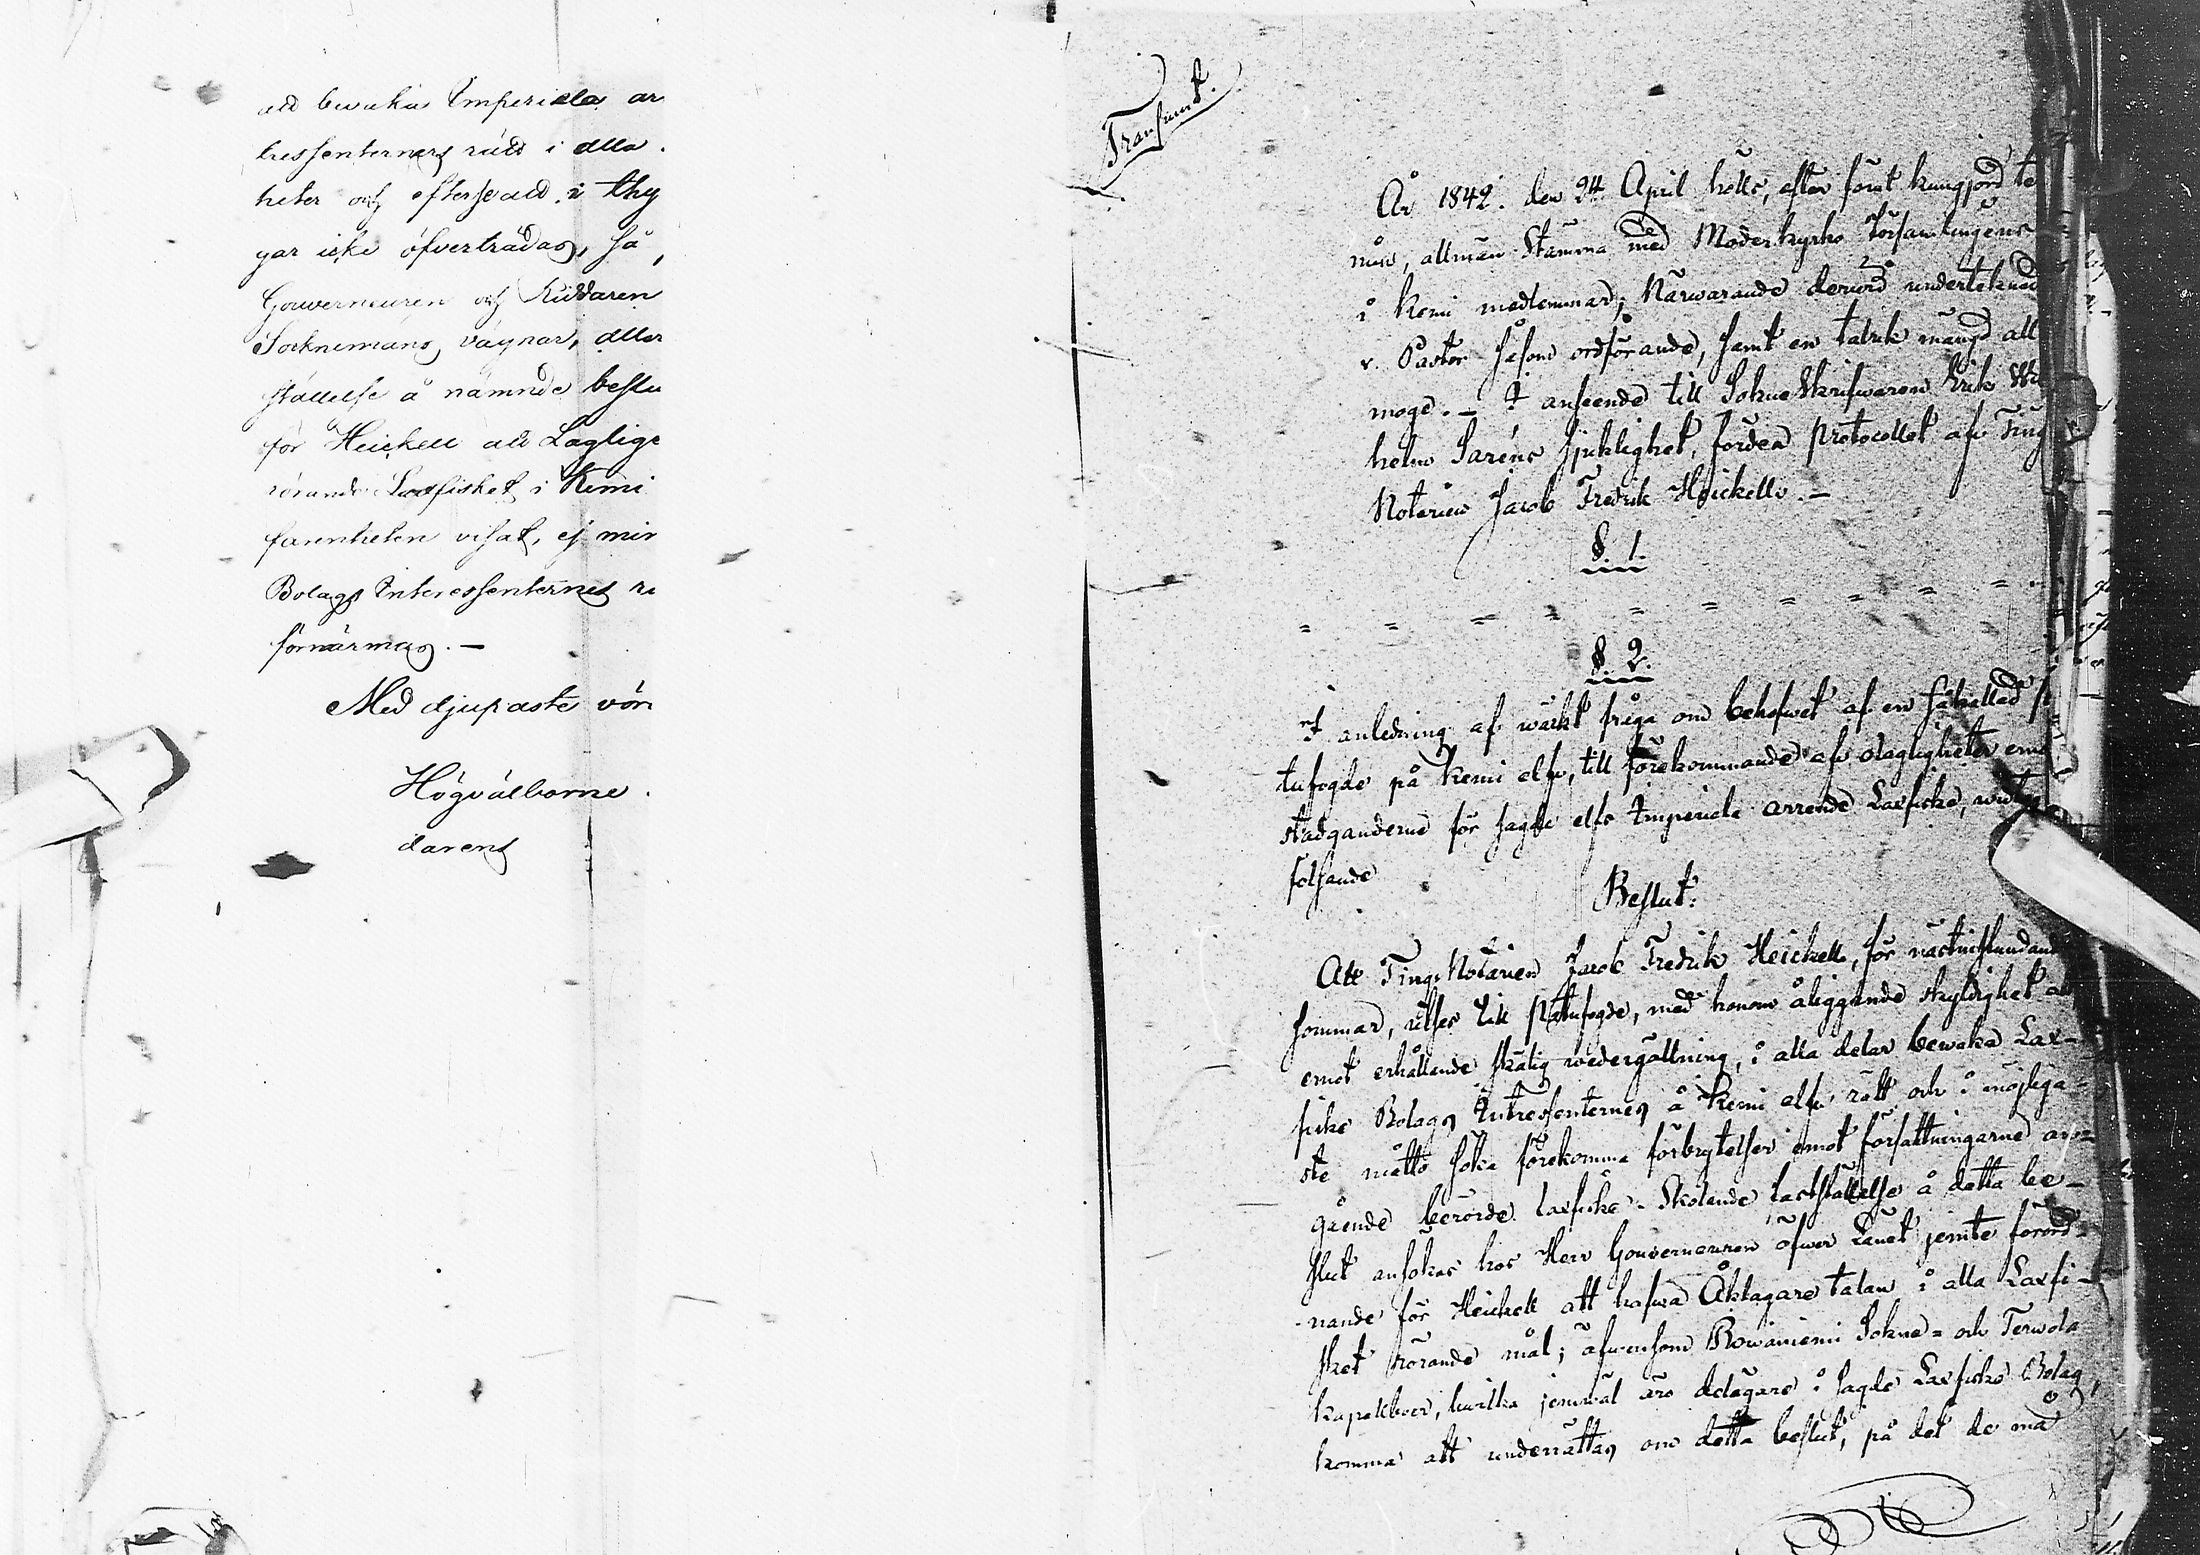 att bevaka Imperiala ar
tressenternes rätt i alla
heter och efterse att i thy
gar icke öfverträdas, så
Gouverneuren och Riddaren
Socknemäns vägnar, aller
ställelse å nämnde beslu
för Heickell att Laglige
rörande Laxfisket i Kemi
farenheten visat, ej min
Bolags Interessenternes rä
förnärmas. —
Med djupaste vör
Högvälborne
darens
Transsumt.
År 1842. den 24 April hölls, efter förut kungjord te
min, allmän Stämma med Moderkyrko Församlingens
i Kemi medlemmar; Närwarande derwid undertecknad
v. Pastor såsom ordförande, samt en talrik mängd all
moge. — I anseende till SokneSkrifwaren Erik Wil
helm Saréns sjuklighet, fördes protocollet af Tings
Notarien Jacob Fredrik Heickell. —
§ 1.
" " " " " " " " " "
§ 2.
I anledning af wäckt fråga om behofwet af en såkallad p
tufogde på Kemi elf, till förekommande af olagligheter emot
stadganderne för sagde elfs Imperiala arrende Laxfiske, widtogs
följande
Beslut:
Att TingsNotarien Jacob Fredrik Heickell, för nästinstundande
sommar, utses till Patufogde, med honom åliggande skyldighet att
emot erhållande skälig wedergällning, i alla delar bewaka Lax-
fiske Bolags Intressenternes å Kemi elf rätt och i möjliga-
ste måtto söka förekomma förbrytelser emot författningarne an-
gående berörde laxfiske. Skolande fastställelse å detta be-
slut ansökas hos Herr Gouverneuren öfwer Länet jemte förord-
nande för Heickell att hafwa Åklagare talan i alla Laxfi-
sket rörande mål; äfwensom Rowaniemi Sokne- och Terwola
kapellboer, hwilka jemwäl äro delägare i sagde Laxfiske Bolag,
komma att underrättas om detta beslut, på det de må